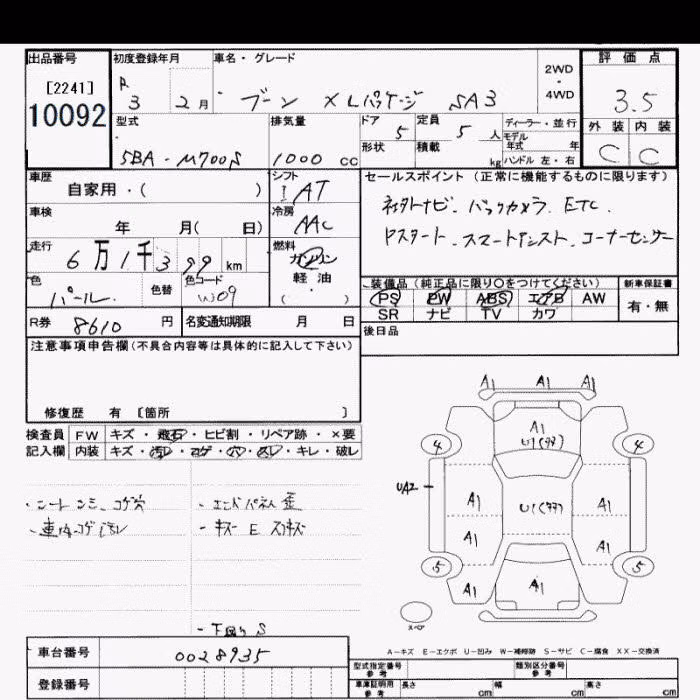 出品番号 初度登録年月 車名・グレード 評価点
[2241] R 3 2月 ブーン X Lパッケージ SA3 2WD・4WD 3.5
10092
型式 排気量 ドア 5 定員 5人 ディーラー・並行 外装 内装
5BA-M700S 1000cc 形状 積載 kg モデル年式 年 C C
ハンドル 左・右
車歴 シフト セールスポイント(正常に機能するものに限ります)
自家用・( ) IAT
車検 冷房 社外ナビ. バックカメラ. ETC.
年 月( 日) AAC Pスタート. スマートアシスト. コーナーセンサー
走行 燃料
6万1千399km ガソリン
色 色替 色コード 軽・油 装備品(純正品に限り○をつけてください) 新車保証書
パール. W09 ( ・ ) PS PW ABS エアB AW 有・無
SR ナビ TV カワ
R券 8610円 名変通知期限 月 日 後日品
注意事項申告欄(不具合内容等は具体的に記入して下さい)
修復歴 有 [箇所 ]
検査員 FW キズ・飛石・ヒビ割・リペア跡・×要
記入欄 内装 キズ・汚レ・コゲ・穴・スレ・キレ・破レ
・シートシミ. コゲ穴 ・エンドパネル歪
・車内コゲ汚レ ・キズ E スリキズ
・下廻り S
A1 A1 A1
A1
U1(フク)
4 4
UA2
A1 U1(フク) A1
A1 A1
5 5
A1 A1
スペア
A-キズ E-エクボ U-凹み W-補修跡 S-サビ C-腐食 XX-交換済
車台番号 0028935 型式指定番号 参考 類別区分番号 参考
登録番号 車庫証明用 参考 長さ cm 幅 cm 高さ cm